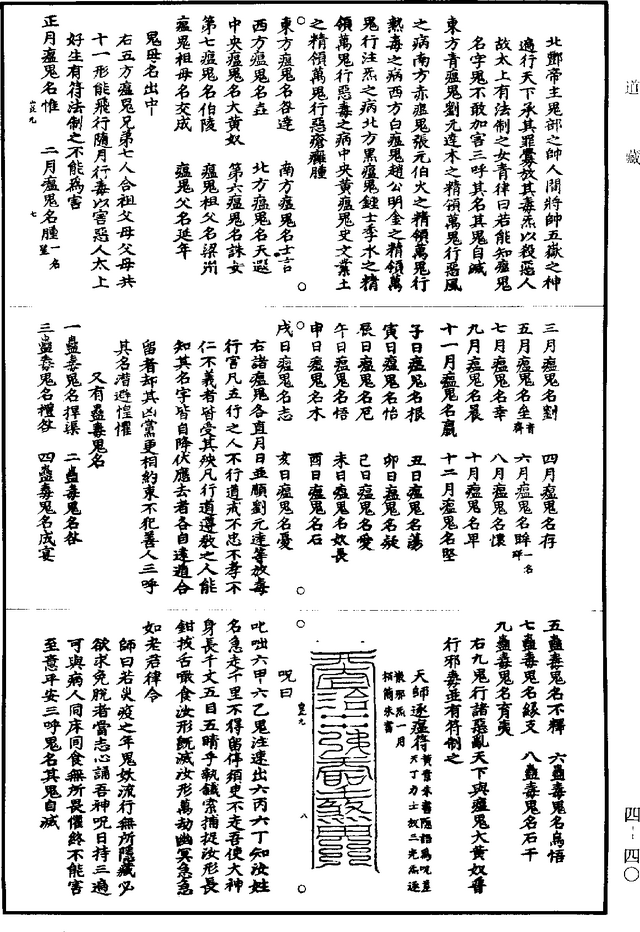 道藏
四-四〇
北酆帝主鬼部之帥人間將帥五嶽之神
遍行天下承其罪釁放其毒炁以殺惡人
故太上有法制之女青律曰若能知瘟鬼
名字鬼不敢加害三呼其名其鬼自滅
東方青瘟鬼劉元達木之精領萬鬼行惡風
之病南方赤瘟鬼張元伯火之精領萬鬼行
熱毒之病西方白瘟鬼趙公明金之精領萬
鬼行注炁之病北方黑瘟鬼鍾士季水之精
領萬鬼行惡毒之病中央黃瘟鬼史文業土
之精領萬鬼行惡瘡癰腫
東方瘟鬼名咎達 南方瘟鬼名士言
西方瘟鬼名垚 北方瘟鬼名天遐
中央瘟鬼名大黃奴 第六瘟鬼名誅女
第七瘟鬼名伯陵 瘟鬼祖父名梁州
瘟鬼祖母名交成 瘟鬼父名延年
鬼母名出中
右五方瘟鬼兄弟七人合祖父母父母共
十一形能飛行隨月行毒以害惡人太上
好生有符法制之不能為害
正月瘟鬼名惟 二月瘟鬼名腫一名
七
三月瘟鬼名剽 四月瘟鬼名存
五月瘟鬼名坐 六月瘟鬼名眸一名
七月瘟鬼名幸 八月瘟鬼名懷
九月瘟鬼名晨 十月瘟鬼名早
十一月瘟鬼名羸 十二月瘟鬼名堅
子日瘟鬼名根 丑日瘟鬼名蕩
寅日瘟鬼名怡 卯日瘟鬼名疑
辰日瘟鬼名卮 巳日瘟鬼名愛
午日瘟鬼名悟 未日瘟鬼名奴長
申日瘟鬼名木 酉日瘟鬼名石
戌日瘟鬼名志 亥日瘟鬼名憂
右諸瘟鬼各直月日並順劉元達等放毒
行害凡五行之人不行道戒不忠不孝不
仁不義者皆受其殃凡行道遵教之人能
知其名字皆自降伏應去者各自遠遁合
留者却其凶黨更相約束不犯善人三呼
其名潛避惶懼
又有蠱毒鬼名
一蠱毒鬼名捍渠 二蠱毒鬼名咎
三蠱毒鬼名禮咎 四蠱毒鬼名成宴
五蠱毒鬼名不釋 六蠱毒鬼名烏悟
七蠱毒鬼名緩支 八蠱毒鬼名石干
九蠱毒鬼名育夷
右九鬼行諸惡亂天下與瘟鬼大黃奴晉
行邪毒並有符制之
天師逐瘟符
八
呪曰
叱咄六甲六乙鬼注速出六丙六丁知汝姓
名急走千里不得留停須臾不走吾使大神
身長千丈五目五睛手執鐵索捕捉汝形長
鉗拔舌噉食汝形既滅汝形萬劫幽冥急急
如老君律令
師曰若災疫之年鬼妖流行無所隱藏必
欲求免脫者當志心誦吾神呪日持三遍
可與病人同床同食無所畏懼終不能害
至意平安三呼鬼名其鬼自滅